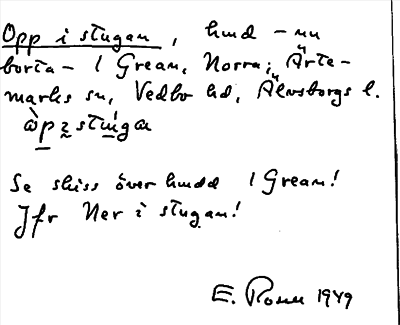 Opp i stugan, hmd - nu
borta - 1 Grean, Norra; Ärte-
marks sn, Vedbo hd, Älvsborgs l.
Se skiss över hmdd 1 Grean!
Jfr Ner i stugan!
E. Rosell 1949